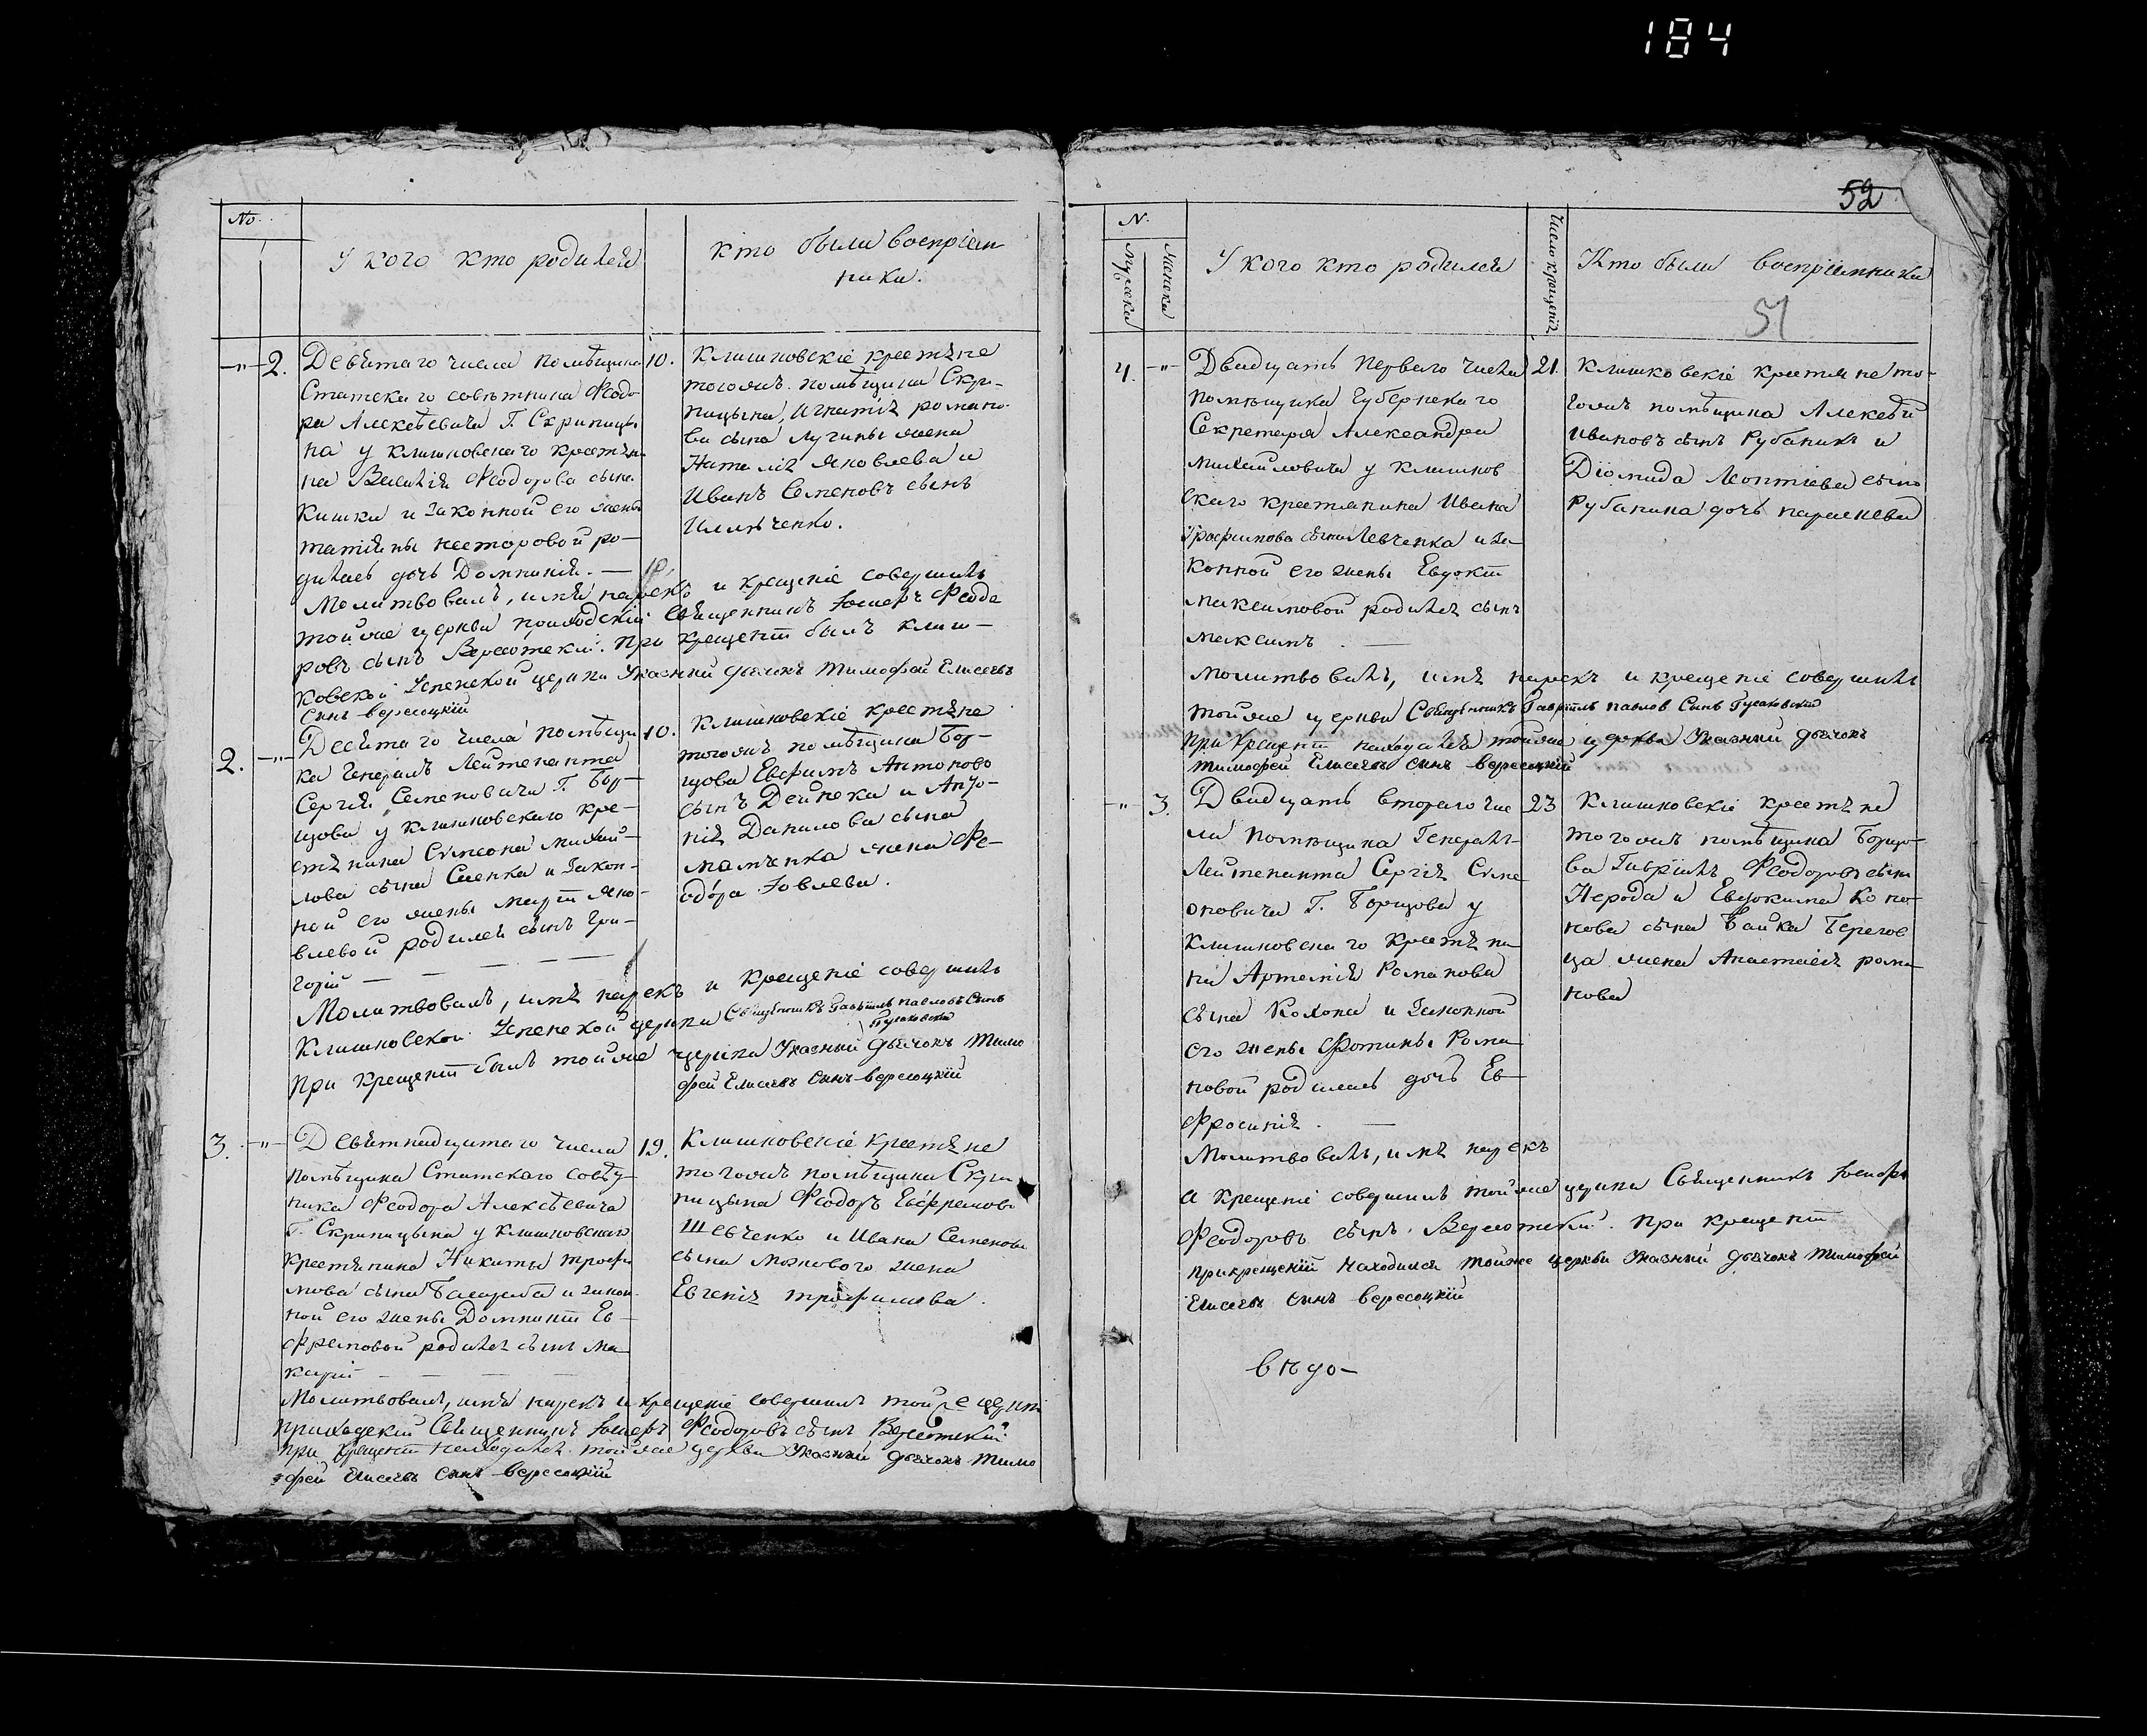 184
No.
У кого кто родился
кто были воспріем-
ники.
-"- 2. Девятаго числа помѣщика 10. Клишковскіе крестяне
Статскаго совѣтника Ѳеодо-
ра Алексѣевича Г. Скрипицы-
на у клишковскаго крестяни-
на Василія Ѳеодорова сына
Кишки и законной его жены
татіяны несторовой ро-
дилась дочь Домникія. —
тогожъ помѣщика Скри-
пицына, Игнатія романо-
ва сына Лугины жена
Наталія яковлева и
Иванъ Семеновъ сынъ
Ильченко.
Молитвовалъ, имя нарекъ и крещеніе совершилъ
тойже церкви приходскій Священникъ Іосифъ Ѳеодо
ровъ сынъ Вересотскій. При крещеніи былъ клиш-
ковской Успенской церкви Указный дьячокъ Тимофей Елисеевъ
Сынъ вересоцкій
2. -"- Десятаго числа помѣщи 10. Клишковскіе крестяне
ка Генералъ Лейтенанта
Сергія Семеновича Г. Бор-
щова у клишковскаго кре-
стянина Симеона михай-
лова сына Сиенка и закон-
ной его жены марѳи яко-
влевой родился сынъ Гри-
горій — — — —
тогожъ помѣщика Бор-
щова Евфимъ Антоновъ
сынъ Дейнека и Анто-
нія Данилова сына
маменка жена Ѳе-
одора Іовлева.
Молитвовалъ, имя нарекъ и крещеніе совершилъ
Клишковской Успенской церкви Священникъ Гавріилъ павловъ Сынъ
Гусаковскій
При крещеніи былъ тойже церкви Указный дьячокъ Тимо
фей Елисеевъ Сынъ вересоцкій
3. -"- Девятнадцатаго числа 19. Клишковскіе крестяне
помѣщика Статскаго совѣт-
ника Ѳеодора Алексѣевича
Г. Скрипицына у клишковскаго
крестянина Никиты трофи
мова сына и закон-
ной его жены Домникіи Ев-
фремовой родился сынъ Ма-
карій — — — —
тогожъ помѣщика Скри
пицына Ѳеодоръ Евфремовъ
Шевченко и Ивана Семенова
сына жена
Евгенія трофимова.
Молитвовалъ, имя нарекъ и крещеніе совершилъ тойже церкви
приходскій Священникъ Іосифъ Ѳеодоровъ сынъ Вересотскій
при крещеніи находился тойже церкви Указный дьячокъ Тимо
фей Елисеевъ Сынъ вересоцкій
52
N.
Мужеска
Женска
У кого кто родился
Число крещенія
Кто были воспріемники
51
4. -"- Двадцать перваго числа 21. Клишковскіе крестяне то-
помѣщика Губернскаго
Секретаря Александра
михайловича у клишков
скаго крестянина Ивана
Трофимова сына Левченка и за-
конной его жены Евдокіи
максимовой родился сынъ
максимъ. —
гожъ помѣщика Алексѣй
Ивановъ сынъ Рубаникъ и
Діомида Леонтіева сына
Рубаника дочь параскева
молитвовалъ, имя нарекъ и крещеніе совершилъ
тойже церкви Священникъ Гавріилъ павловъ Сынъ Гусаковскій
при крещеніи находился тойже церкви Указный дьячокъ
тимофей Елисеевъ Сынъ вересоцкій
-"- 3. Двадцать втораго чис 23 Клишковскіе крестяне
ла помѣщика Генералъ-
Лейтенанта Сергія Симе
оновича Г. Борщова у
клишковскаго крестяни
на Артемія Романова
сына Кохона и законной
его жены Фотины Рома
новой родилась дочь Ев-
фросинія. —
тогожъ помѣщика Борщо-
ва Гавріилъ Ѳеодоровъ сынъ
Нерода и Евдокима Коно-
нова сына Байка Берегов
ца жена Анастасія рома
нова
Молитвовалъ, имя нарекъ
и крещеніе совершилъ тойже церкви Священникъ Іосифъ
Ѳеодоровъ сынъ Вересотскій. при крещеніи
прикрещеніи находился тойже церкви Указный дьячокъ Тимофей
Елисеевъ Сынъ вересоцкій
вѣдо-